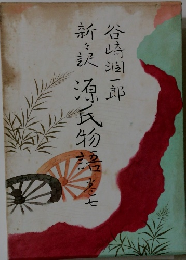 谷崎潤一郎
新々訳
源氏物語 巻七